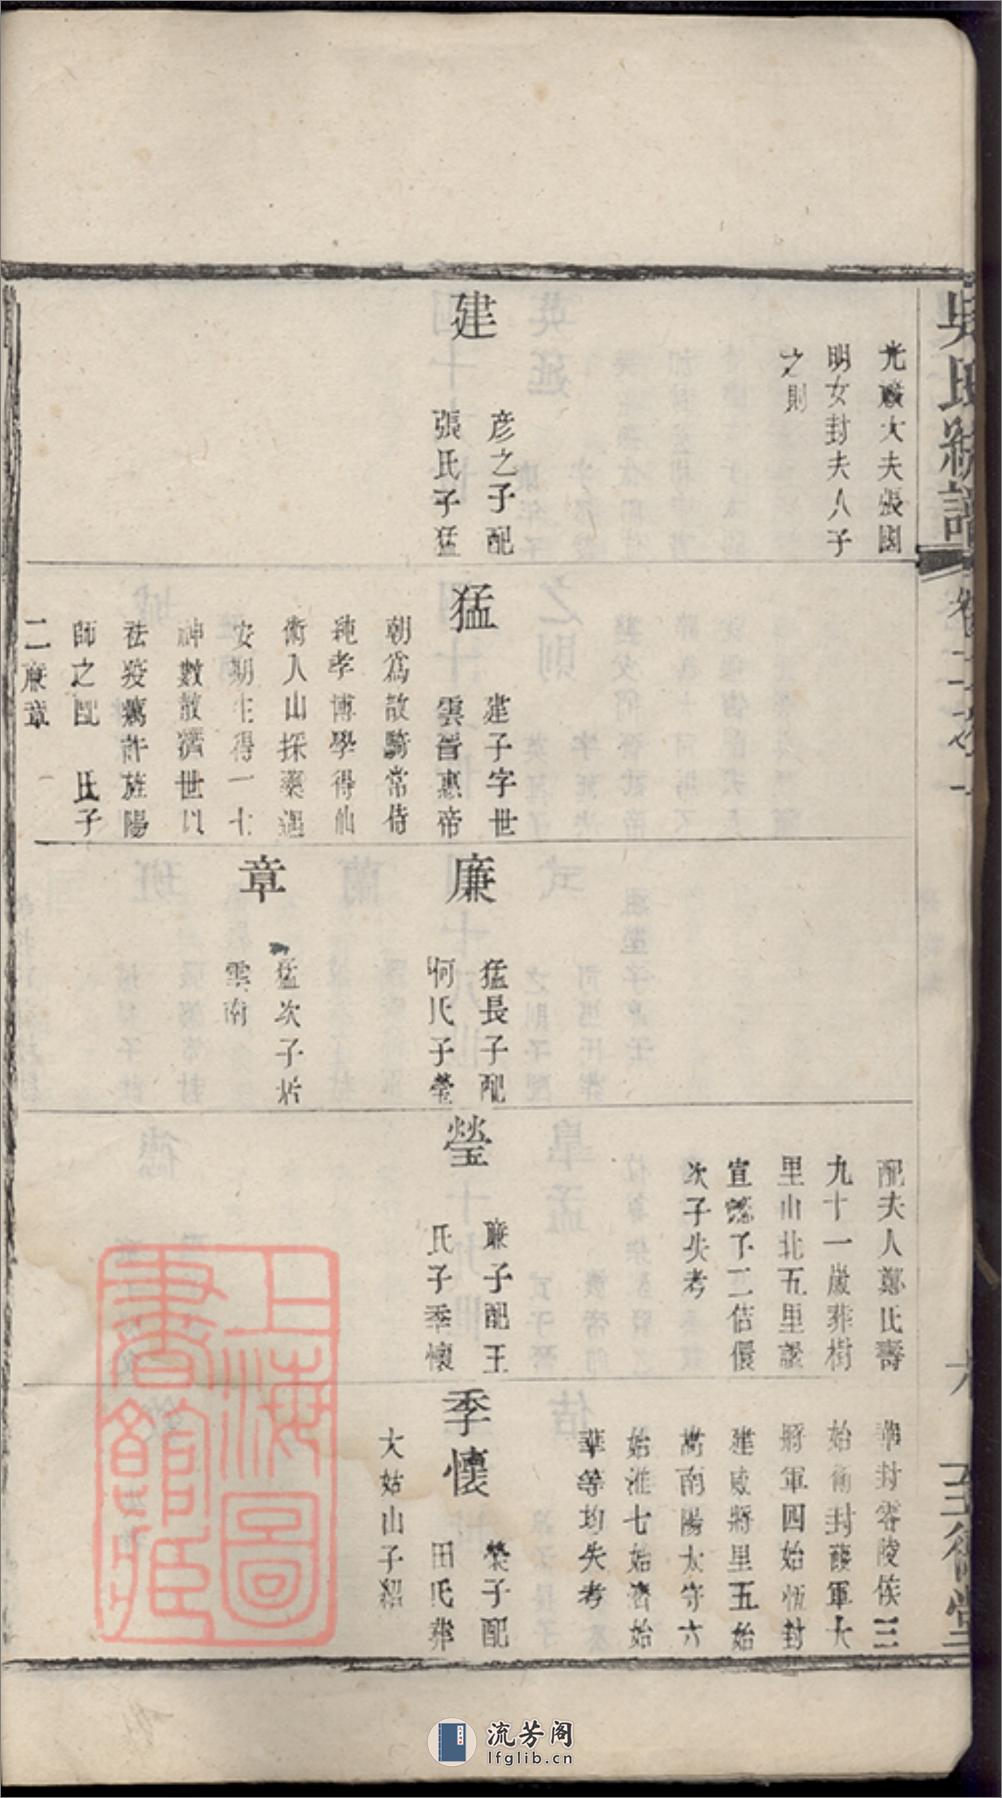 吳氏統譜
卷十
至德堂
光祿大夫張園
明女封夫人子
之則
建
彦之子配
張氏子猛
猛
建子字世
雲晉惠帝
朝爲散騎常侍
純孝博學得仙
術入山採藥遇
安期生得一七
神數散濟世以
祛疫癘許旌陽
師之配 氏子
二廉章
廉
猛長子配
何氏子瑩
章
猛次子居
雲南
配夫人鄭氏壽
九十一歲葬樹
里山北五里
宣懿子二佶
次子失考
瑩
廉子配王
氏子季懷
封零陵侯三
始 封護軍大
將軍四始恆封
建威將軍五始
嵩南陽太守六
始淮七始濟始
華等均失考
季懷
瑩子配
田氏葬
大姑山子紹
上海圖書館藏
流芳阁
lfglib.cn